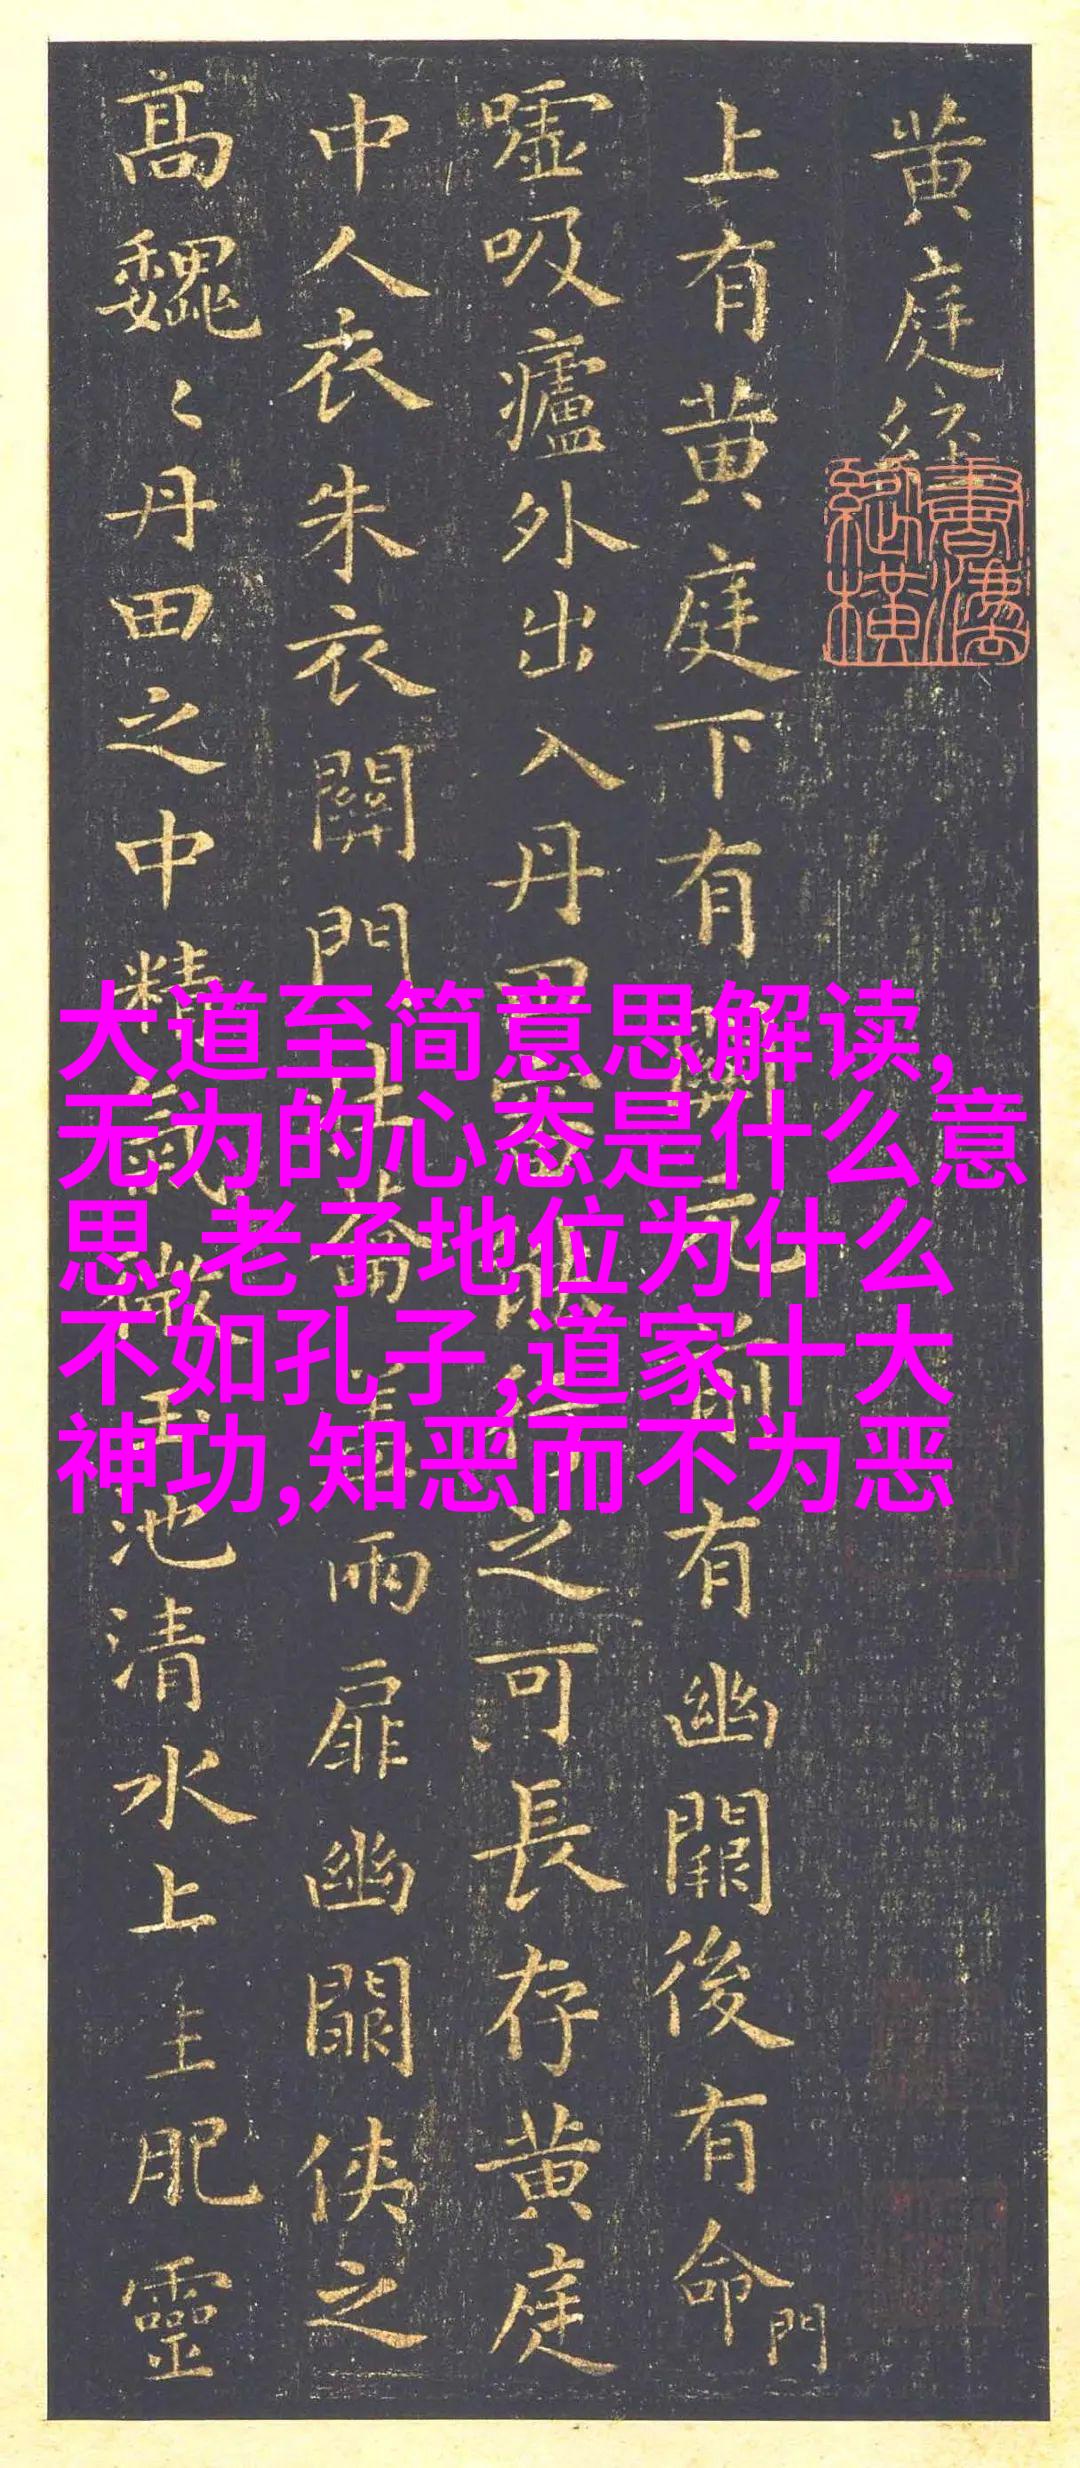 黄庭經
上有黄庭下有關元前有幽闕後有命門
嘘吸廬外出入丹田審能行之可長存黄庭
中人衣朱衣關門壮蘥蓋兩扉幽闕侠之
高魏〻丹田之中精氣微玉池清水上生肥靈
大道至简意思解读,
无为的心态是什么意
思,老子地位为什么
不如孔子,道家十大
神功,知恶而不为恶